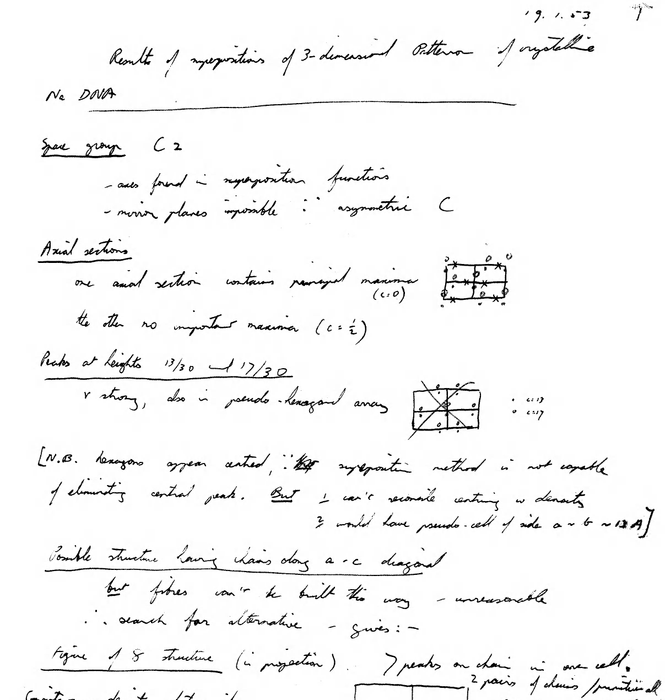 19.1.53
Results of superpositions of 3-dimensional Patterson of crystalline
Na DNA
Space group C2
- axes found in superposition functions
- mirror planes impossible ∵ asymmetric C
Axial sections
one axial section contains principal maxima
(c=0)
the other no important maxima (c=½)
Peaks at heights 13/30 and 17/30
v strong, also in pseudo-hexagonal array
[N.B. hexagons appear centred, ∵ superposition method is not capable
of eliminating central peak. But 1 can't reconcile centring w density
2 would have pseudo-cell of side a ~ b ~ 13 A]
Possible structure having chains along a-c diagonal
but fibres can't be built this way - unreasonable
∴ search for alternative - gives:-
Figure of 8 structure (in projection). 7 peaks on chain in one cell.
2 pairs of chains /